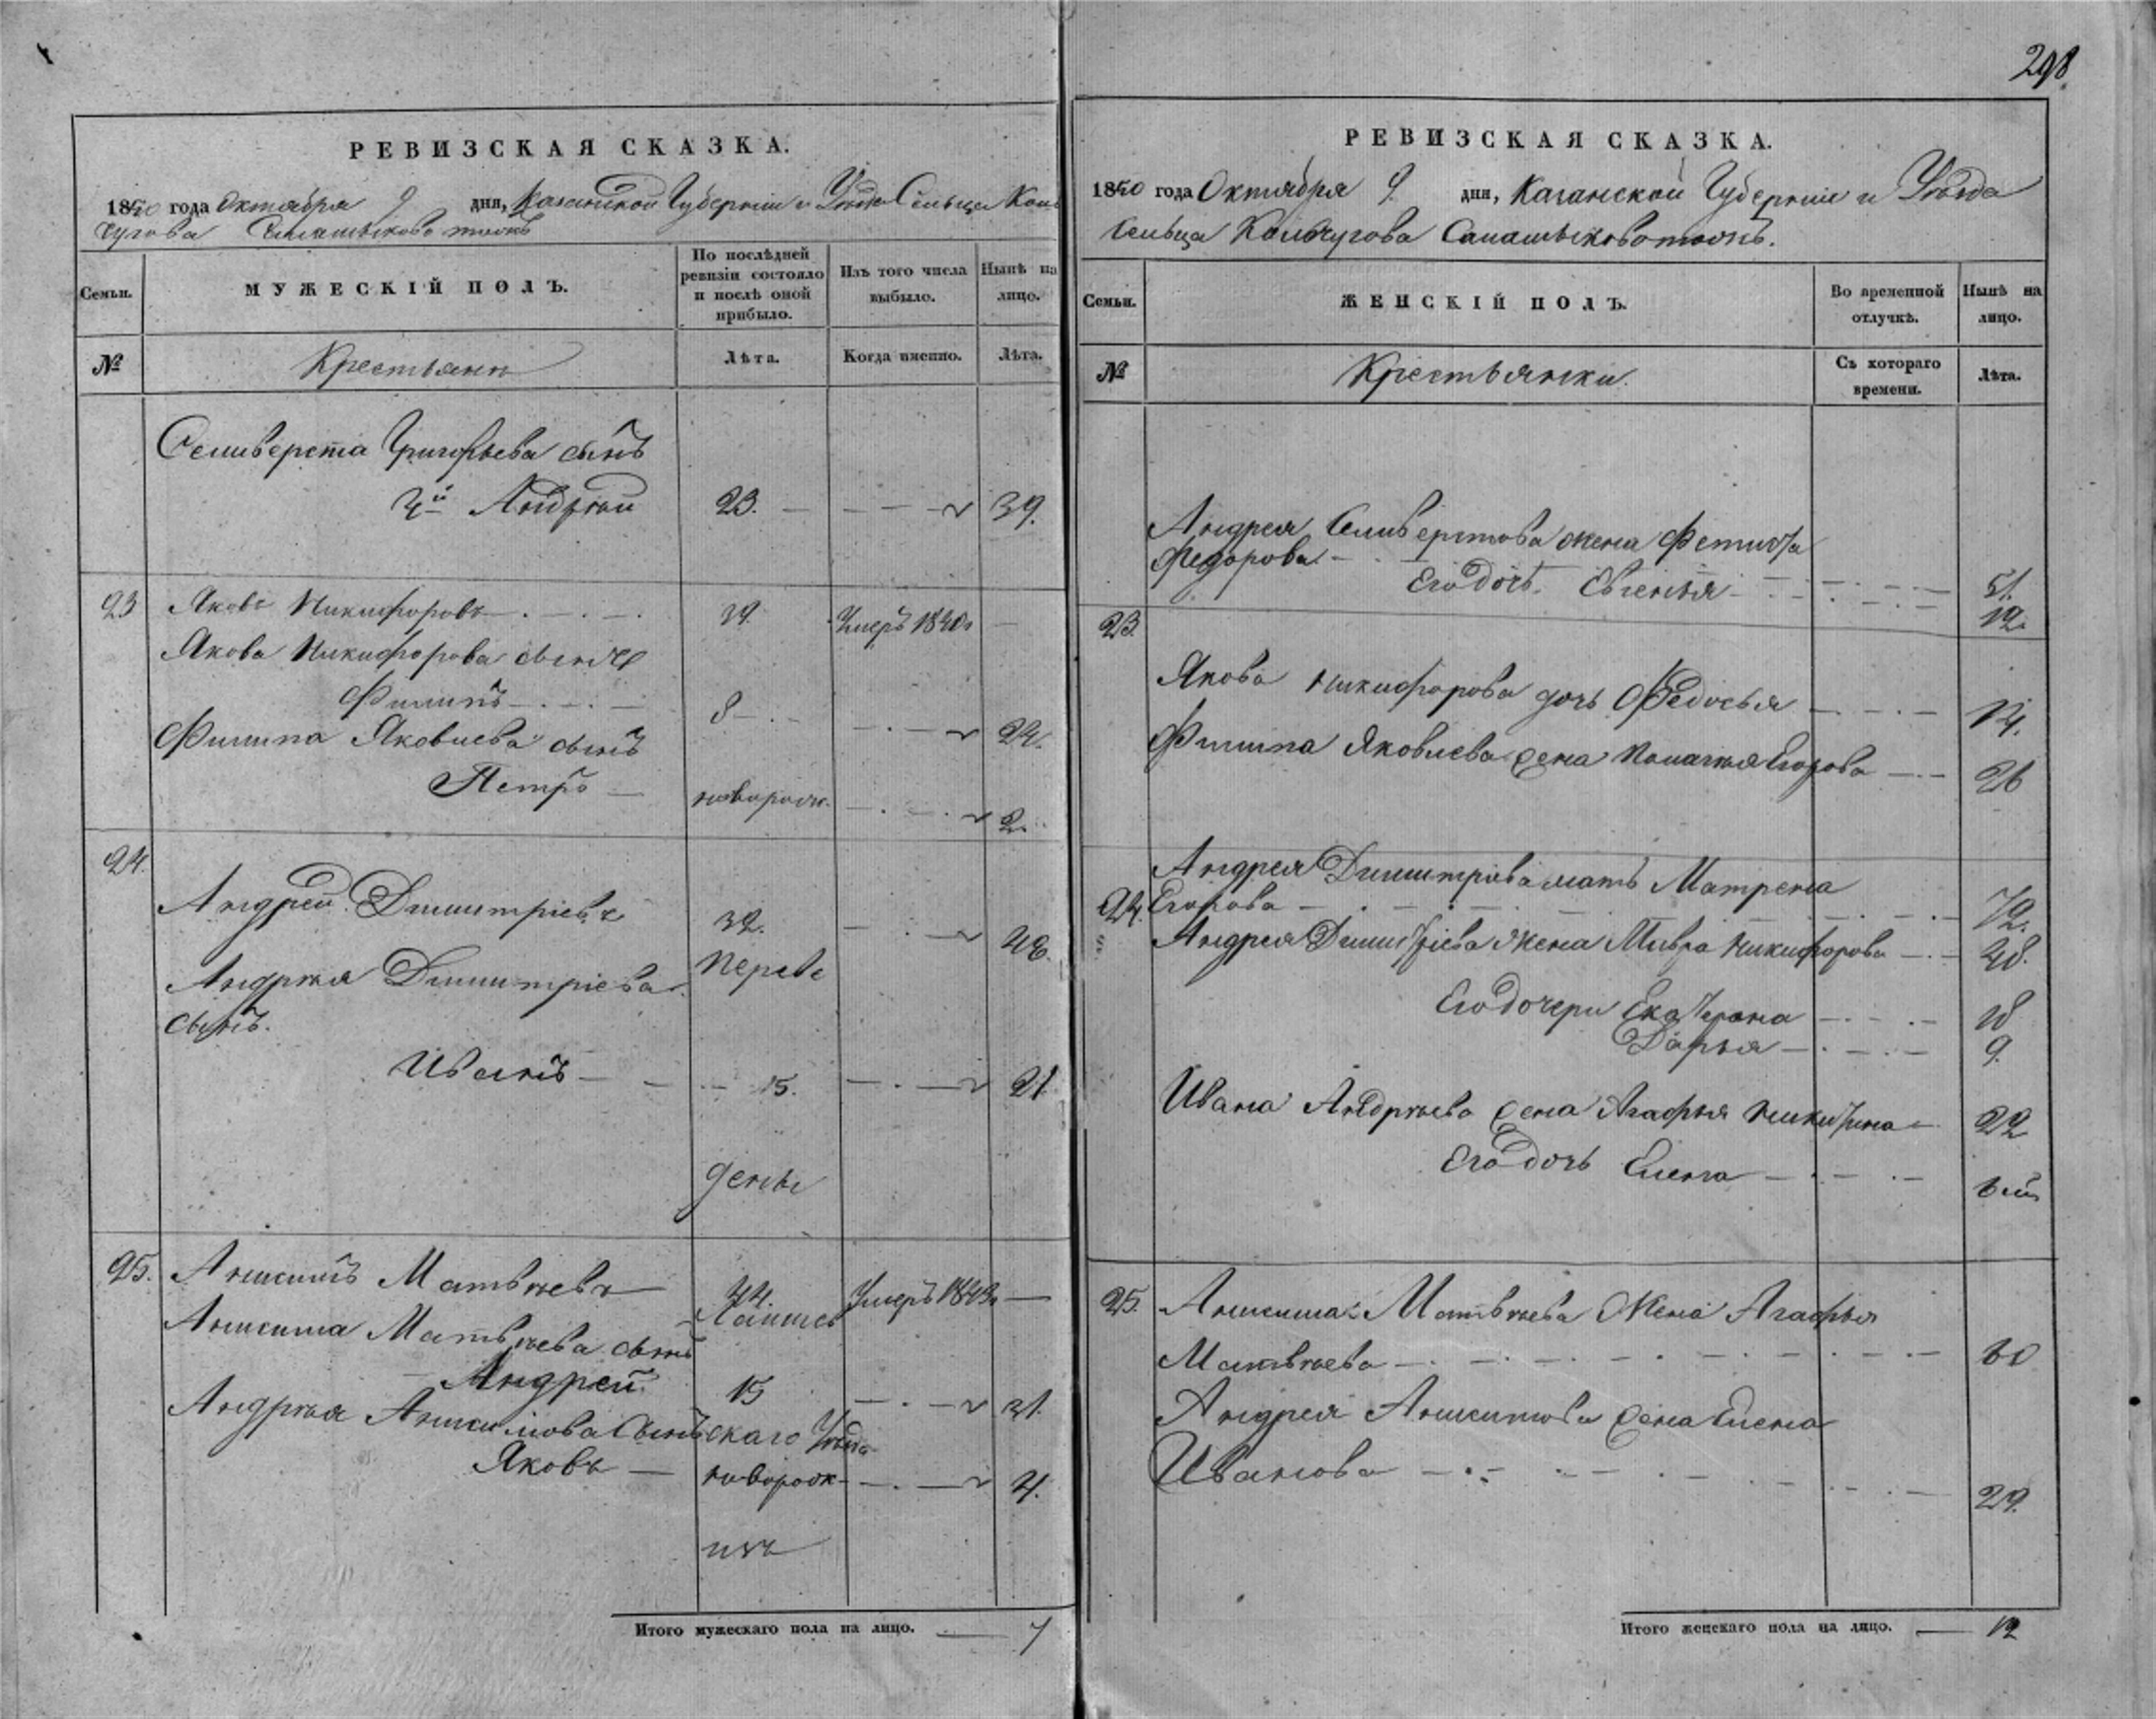 298.
РЕВИЗСКАЯ СКАЗКА.
1850 года Октября 9 дня, Казанской Губернiи и Уѣзда Сельца Коль
чугова тожъ
Семьи. МУЖЕСКIЙ ПОЛЪ. По послѣдней ревизiи состояло и послѣ оной прибыло. Изъ того числа выбыло. Нынѣ на лицо.
№ Крестьяне Лѣта. Когда именно. Лѣта.
Селиверста Григорьева сынъ
Андрей 23. 39.
23 Яковъ Никифоровъ 39. Умеръ 1840
Якова Никифорова сынъ
Филипъ 8 24.
Филипа Яковлева сынъ
Петръ новорож. 2.
24. Андрей Димитрiевъ 32. 48.
Андрея Димитрiева переве
сынъ.
Иванъ 15. 21
дены
25. Анисимъ Матвѣевъ 44. Умеръ 1843
Анисима Матвѣева сынъ Лаишев
Андрей 15 31.
Андрея Анисимова сынъ скаго Уѣзда
Яковъ новорож 4.
Итого мужескаго пола на лицо. 7
РЕВИЗСКАЯ СКАЗКА.
1850 года Октября 9. дня, Казанской Губернiи и Уѣзда
Сельца Кольчугова тожъ.
Семьи. ЖЕНСКIЙ ПОЛЪ. Во временной отлучкѣ. Нынѣ на лицо.
№ Крестьянки. Съ котораго времени. Лѣта.
Андрея Селиверстова жена Фетинья
Федорова 51.
Его дочь Евгенья 12.
23.
Якова Никифорова дочь Федосья 14.
Филипа Яковлева жена Егорова 26
Андрея Димитрiева мать Матрена
24. Егорова 72.
Андрея Димитрiева жена Мавра Никифорова 48.
Его дочери Екатерина 18
Дарья 9.
Ивана Андреева жена Агафья Никитина 22
Его дочь Елена
25. Анисима Матвѣева жена Агафья
Матвѣева 60
Андрея Анисимова жена Елена
Иванова 29.
Итого женскаго пола на лицо. 12